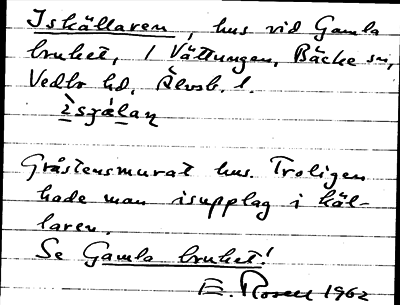 Iskällaren, hus vid Gamla
bruket, / Vättungen, Bäcke sn,
Vedbo hd, Älvsb. l.
Gråstensmurat hus. Troligen
hade man isupplag i käl-
laren.
Se Gamla bruket!
E. Rosell 1962